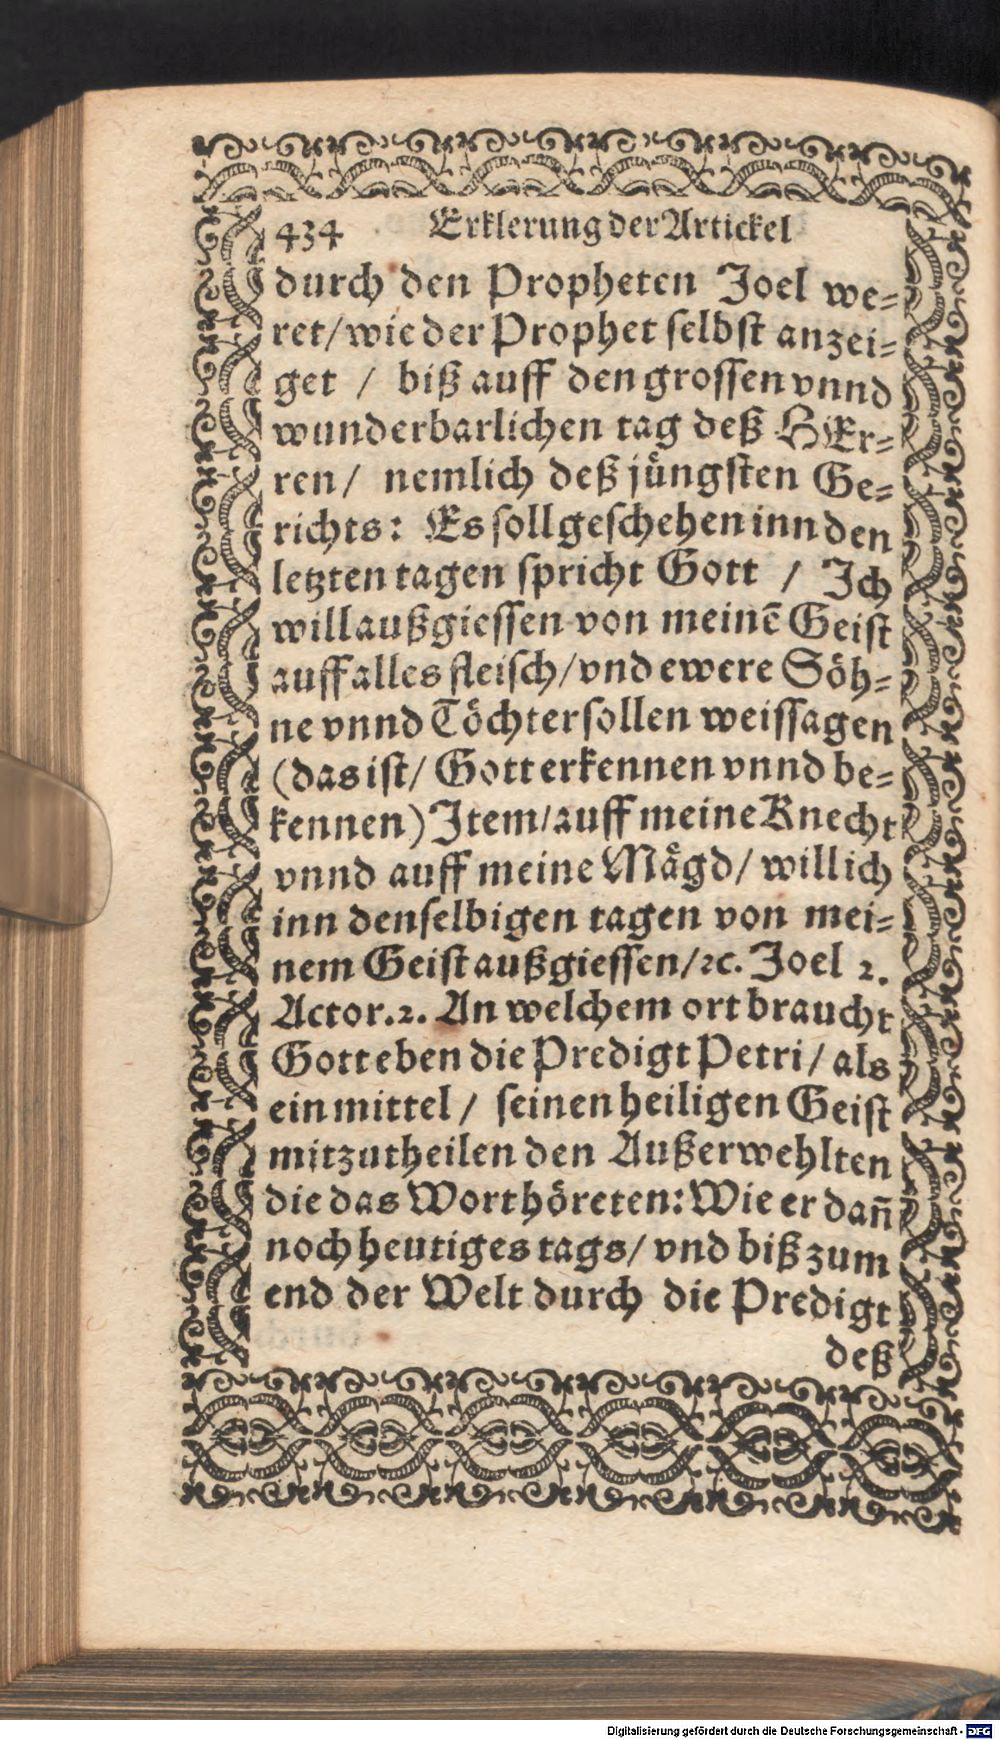 434 Erklerung der Artickel
durch den Propheten Joel we⸗
ret/ wie der Prophet selbst anzei⸗
get / biß auff den grossen vnnd
wunderbarlichen tag deß HErr⸗
ren/ nemlich deß jüngsten Ge⸗
richts: Es soll geschehen inn den
letzten tagen spricht Gott / Ich
will außgiessen von meinē Geist
auff alles fleisch/ vnd ewere Söh⸗
ne vnnd Töchter sollen weissagen
(das ist/ Gott erkennen vnnd be⸗
kennen) Item/ auff meine Knecht
vnnd auff meine Mägd/ will ich
inn denselbigen tagen von mei⸗
nem Geist außgiessen/ ꝛc. Joel 2.
Actor. 2. An welchem ort braucht
Gott eben die Predigt Petri/ als
ein mittel / seinen heiligen Geist
mitzutheilen den Außerwehlten
die das Wort höreten: Wie er dañ
noch heutiges tags/ vnd biß zum
end der Welt durch die Predigt
deß
Digitalisierung gefördert durch die Deutsche Forschungsgemeinschaft - DFG